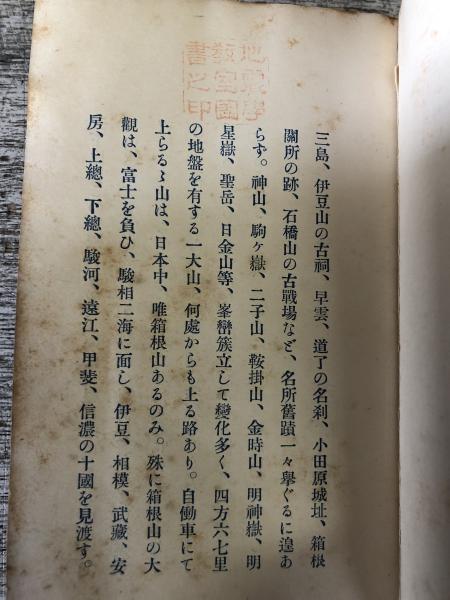 地震學
敎室圖
書之印
三島、伊豆山の古祠、早雲、道了の名刹、小田原城址、箱根
關所の跡、石橋山の古戰場など、名所舊蹟一々擧ぐるに遑あ
らず。神山、駒ヶ嶽、二子山、鞍掛山、金時山、明神嶽、明
星嶽、聖岳、日金山等、峯巒簇立して變化多く、四方六七里
の地盤を有する一大山、何處からも上る路あり。自働車にて
上らるゝ山は、日本中、唯箱根山あるのみ。殊に箱根山の大
觀は、富士を負ひ、駿相二海に面し、伊豆、相模、武藏、安
房、上總、下總、駿河、遠江、甲斐、信濃の十國を見渡す。